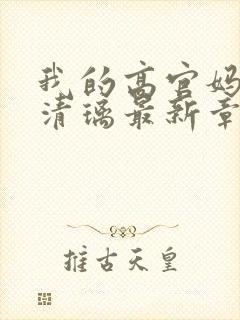 我的高官妈
清璃最新章
推古天皇